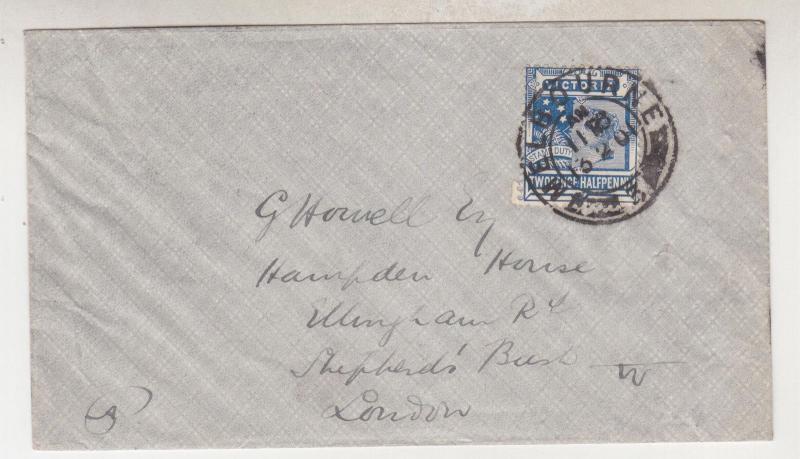 VICTORIA
STAMP DUTY
TWOPENCE HALFPENNY
MELBOURNE
G Howell Esq
Hampden House
Ellingham Rd
Shepherd's Bush W
London